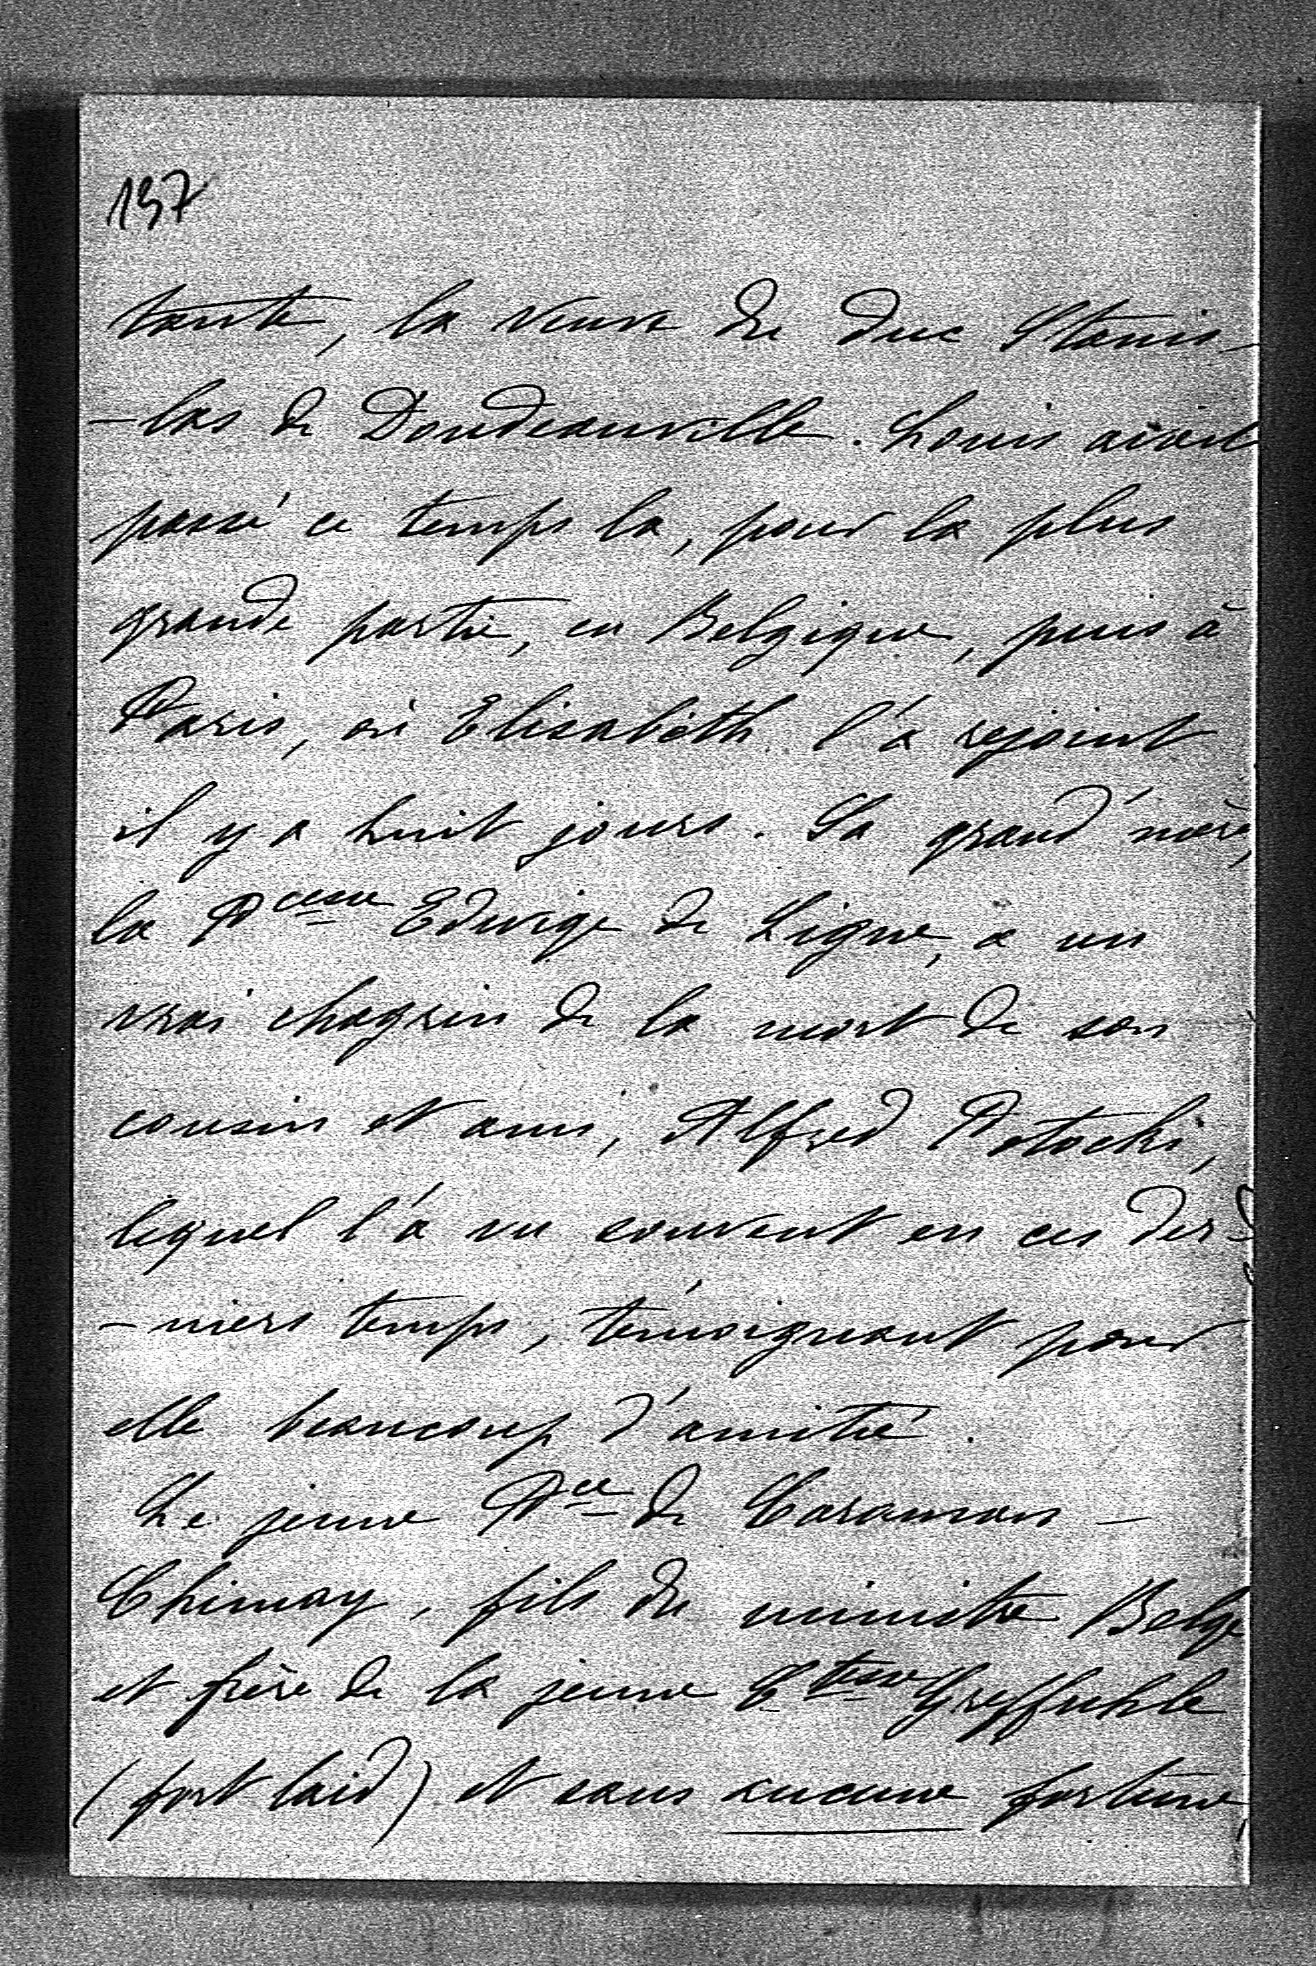 157
tante, la veuve du duc Stanis-
-las de Doudeauville. Louis avait
passé ce temps la, pour la plus
grande partie, en Belgique, puis à
Paris, où Elisabeth l'a rejoint
il y a huit jours. Sa grand'mère,
la Pcesse Edwige de Ligne, a un
vrai chagrin de la mort de son
cousin et ami, Alfred Potocki,
lequel l'a vu souvent en ces der-
-niers temps, témoignant pour
elle beaucoup d'amitié.
Le jeune Pce de Caraman-
Chimay, fils du ministre Belge
et frère de la jeune Ctesse Greffuhle
(fort laid) et sans aucune fortune,